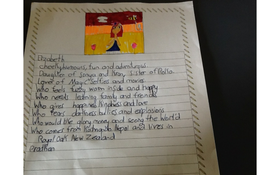 Elizabeth
Cheeky, fun and adventurous
Daughter of and Ben, sister of
Lover of Magic, selfies and movies
Who feels fuzzy warm inside and happy
Who needs learning family and friends
Who gives happiness kindness and love
Who fears darkness bullies and explosions
Who would like glory money and seeing the world
Who comes from Kathmandu Nepal and lives in
Royal Oak New Zealand
Pradhan